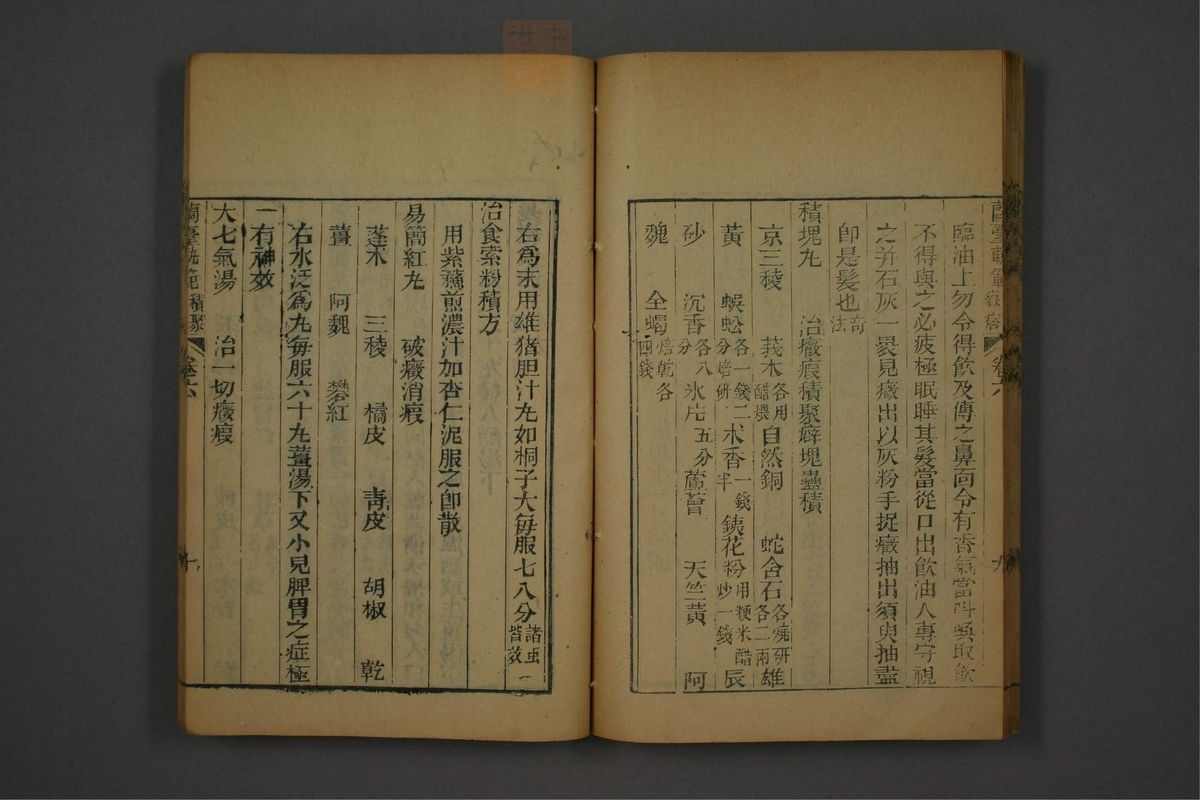 蘭臺軌範 癥瘕 卷六 九
臨油上勿令得飲及傳之鼻面令有香氣當叫喚取飲
不得與之必疲極眠睡其髮當從口出飲油人專守視
之并石灰一裹見癥出以灰粉手捉癥抽出須臾抽盡
即是髮也奇法
積塊丸 治癥瘕積聚癖塊蟲積
京三稜 莪朮各用醋煨 自然銅 蛇含石各燒研各二兩 雄
黃 蜈蚣各一錢二分焙研 木香一錢半 銕花粉用粳米醋炒一錢 辰
砂 沉香各八分 氷片五分 蘆薈 天竺黃 阿
魏 全蝎焙乾各四錢
右爲末用雄猪胆汁丸如桐子大每服七八分諸虫皆效
治食索粉積方
用紫蘓煎濃汁加杏仁泥服之卽散
易簡紅丸 破癥消瘕
蓬朮 三稜 橘皮 靑皮 胡椒 乾
薑 阿魏 礬紅
右水泛爲丸每服六十丸薑湯下又小兒脾胃之症極
有神效
大七氣湯 治一切癥瘕
蘭臺軌範 積聚 卷六 十